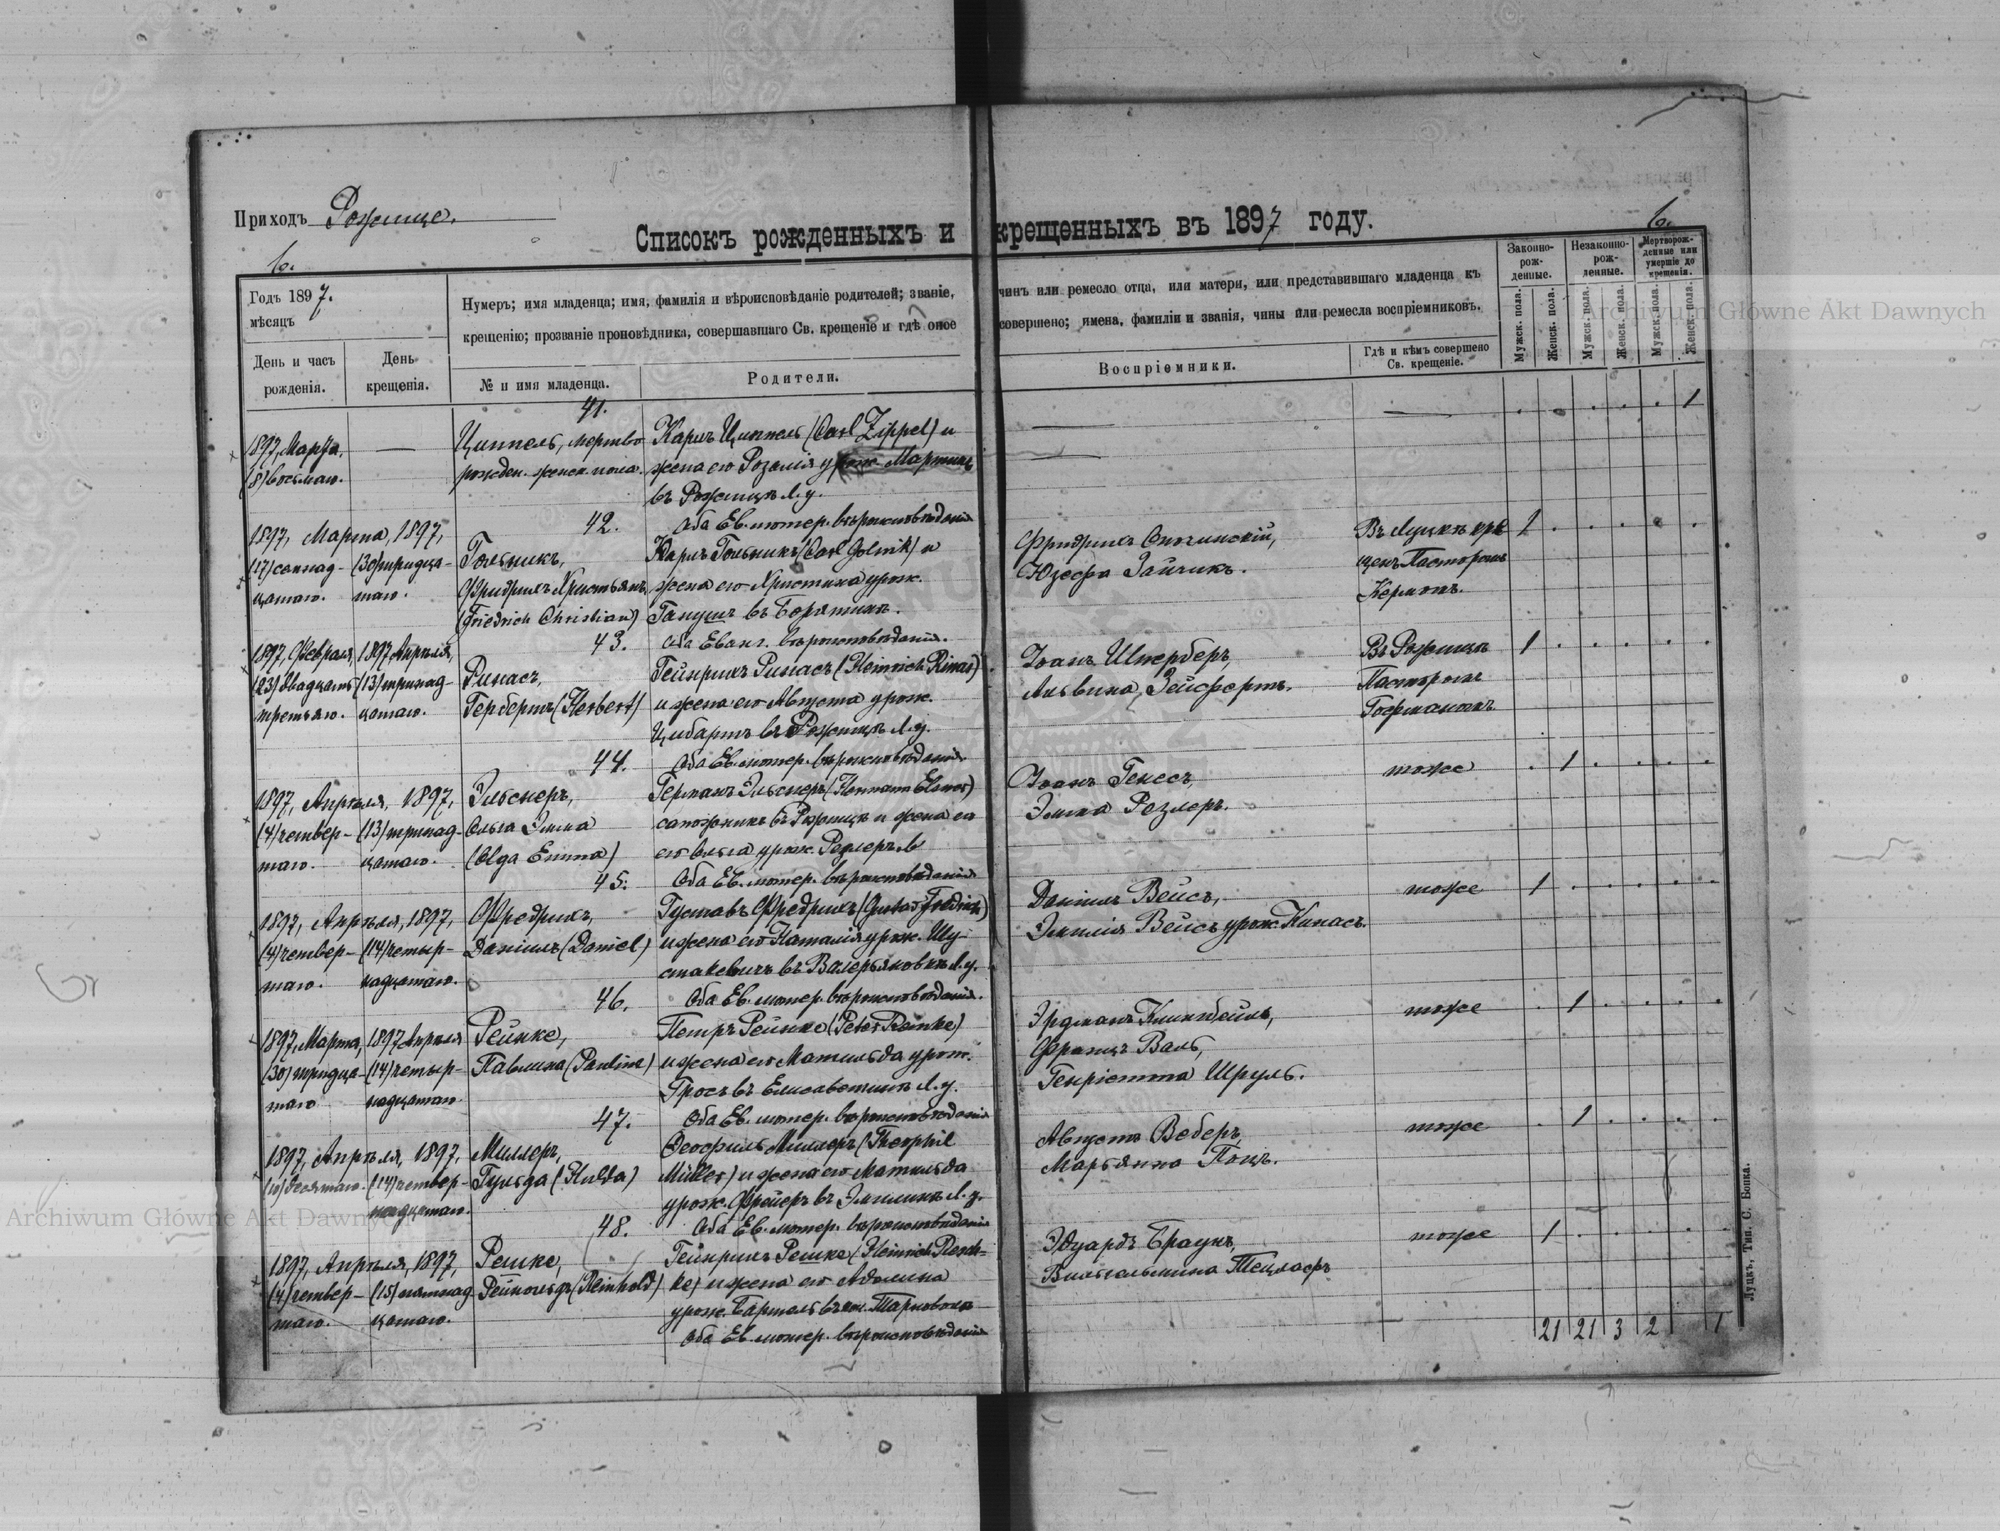 Приходъ Рожище.
Списокъ рожденныхъ и крещенныхъ въ 1897 году.
6.
6.
Годъ 1897.
мѣсяцъ
День и часъ
рожденія.
День
крещенія.
Нумеръ; имя младенца; имя, фамилія и вѣроисповѣданіе родителей; званіе, чинъ или ремесло отца, или матери, или представившаго младенца къ
крещенію; прозваніе проповѣдника, совершавшаго Св. крещеніе и гдѣ оное совершено; имена, фамиліи и званія, чины или ремесла воспріемниковъ.
№ и имя младенца.
Родители.
Воспріемники.
Гдѣ и кѣмъ совершено
Св. крещеніе.
Законно-
рож-
денные.
Незаконно-
рож-
денные.
Мертворож-
денные или
умершіе до
крещенія.
Мужск. пола.
Женск. пола.
Мужск. пола.
Женск. пола.
Мужск. пола.
Женск. пола.
41.
1897, Марта,
(8) восьмаго.
Циппель, мертво
рожден. женск. пола.
Карлъ Циппель (Carl Zippel) и
жена его Розалія урож. Мартинъ
въ Рожищѣ Л. у.
Оба Ев. лютер. вѣроисповѣданія
1
42.
1897, Марта, 1897,
(17) семнад- (30) тридца-
цатаго. таго.
Гольникъ,
Фридрихъ Христьянъ,
(Friedrich Christian)
Карлъ Гольникъ (Carl Golnik) и
жена его Христина урож.
Ганушъ въ Борятинѣ.
Оба Еванг. вѣроисповѣданія.
Фридрихъ
Юзефа Зайчикъ.
Въ Луцкѣ кре
щенъ Пасторомъ
Кермомъ.
1
43.
1897, Февраля, 1897 Апрѣля,
(23) двадцать (13) тринад-
третьяго. цатаго.
Ринасъ,
Гербертъ (Herbert)
Гейнрихъ Ринасъ (Heinrich Rinas)
и жена его Августа урож.
Цибартъ въ Рожищѣ Л. у.
Оба Ев. лютер. вѣроисповѣданія
Іоанъ Шперберъ,
Альвина Зейфертъ.
Въ Рожищѣ
Пасторомъ
1
44.
1897, Апрѣля, 1897,
(4) четвер- (13) тринад-
таго. цатаго.
Эльснеръ,
Ольга Эмма
(Olga Emma)
Германъ Эльснеръ (Hermann Elsner)
сапожникъ въ Рожищѣ и жена
его Ольга урож.
Оба Ев. лютер. вѣроисповѣданія
Іоанъ Генесъ,
Эмма Резлеръ.
тоже
1
45.
1897, Апрѣля, 1897,
(4) четвер- (14) четыр-
таго. надцатаго.
Фредрихъ,
Даніилъ (Daniel)
Густавъ Фредрихъ (Gustav Fredrich)
и жена его Наталія урож. Шу-
стакевичъ въ Валерьяновкѣ Л. у.
Оба Ев. лютер. вѣроисповѣданія.
Даніилъ Вейсъ,
Эмилія Вейсъ урож. Кинасъ.
тоже
1
46.
1897, Марта, 1897 Апрѣля
(30) тридца- (14) четыр-
таго надцатаго.
Рейнке,
Павлина (Pauline)
Петръ Рейнке (Peter Reinke)
и жена его Матильда урож.
Гросъ въ Елисаветинѣ Л. у.
Оба Ев. лютер. вѣроисповѣданія
Эрдманъ Клингбейль,
Францъ Валь,
Генріетта Шруль.
тоже
1
47.
1897, Апрѣля, 1897,
(10) десятаго. (14) четвер-
надцатаго.
Миллеръ,
Гульда (Hulda)
Феофилъ Миллеръ (Theophil
Müller) и жена его Матильда
урож. Фрейеръ въ Эмилинѣ Л. у.
Оба Ев. лютер. вѣроисповѣданія
Августъ Веберъ,
Марьянна Понъ.
тоже
1
48.
1897, Апрѣля, 1897,
(4) четвер- (15) пятнад
таго. цатаго.
Решке,
Рейнольдъ (Reinhold)
Гейнрихъ Решке (Heinrich Resch-
ke) и жена его Аделина
урож. Бартель въ кол. Тарновола
Оба Ев. лютер. вѣроисповѣданія
Эдуардъ Браунъ,
Вильгельмина Тецлафъ
тоже
1
21 21 3 2 1
Луцкъ, Тип. С. Бонка.
Archiwum Główne Akt Dawnych
Archiwum Główne Akt Dawnych